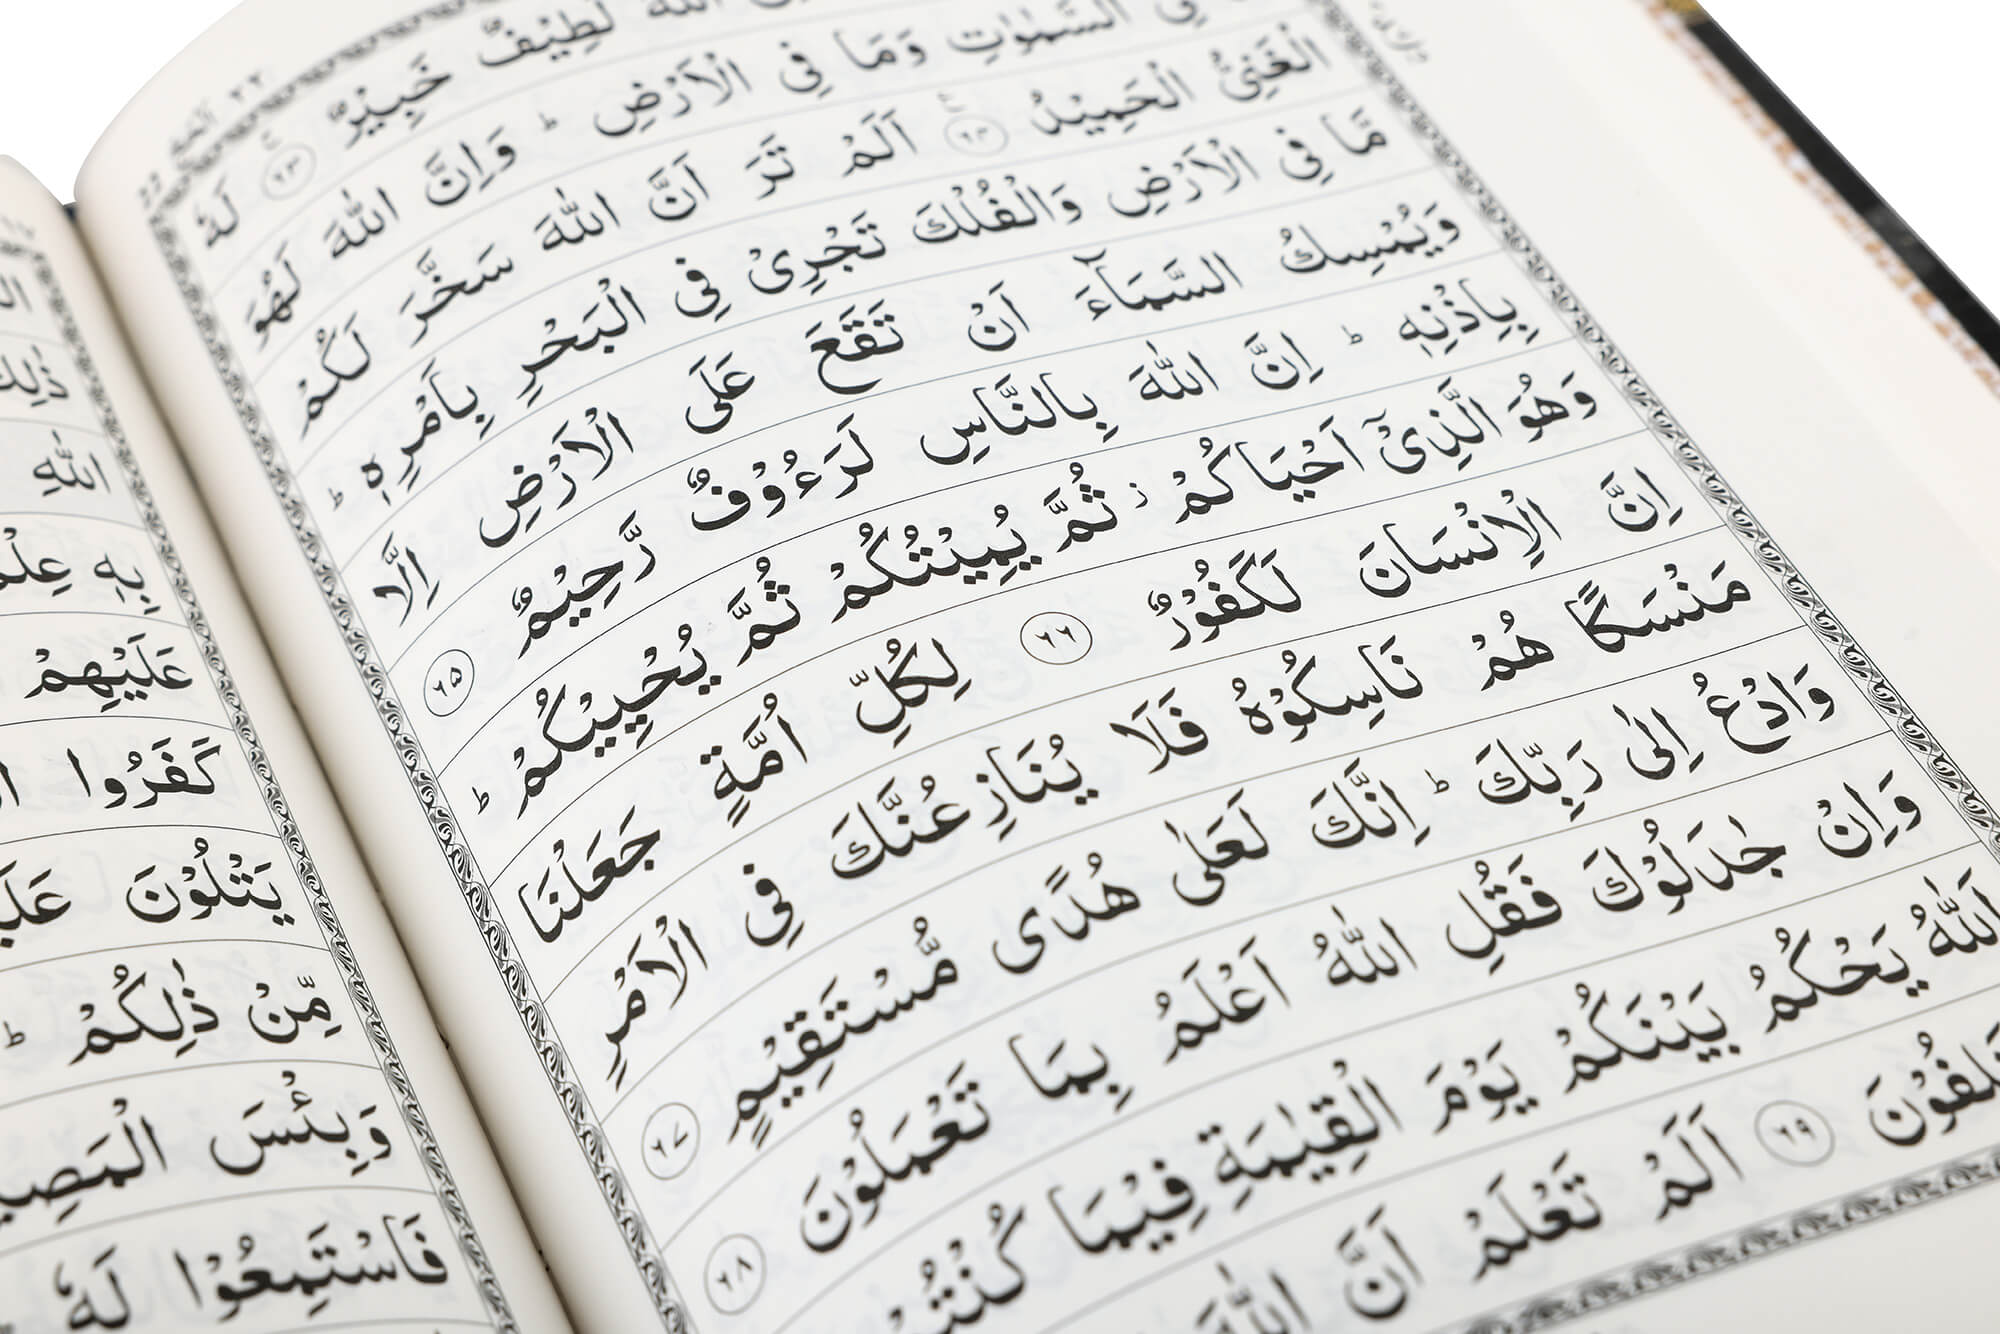 الحج ٢٢
اللّٰهَ لَطِيْفٌ خَبِيْرٌ ۶۳ لَهٗ
فِي السَّمٰوٰتِ وَمَا فِي الْاَرْضِ ؕ وَاِنَّ اللّٰهَ لَهُوَ
الْغَنِيُّ الْحَمِيْدُ ۶۴ اَلَمْ تَرَ اَنَّ اللّٰهَ سَخَّرَ لَكُمْ
مَّا فِي الْاَرْضِ وَالْفُلْكَ تَجْرِيْ فِي الْبَحْرِ بِاَمْرِهٖ ؕ
وَيُمْسِكُ السَّمَآءَ اَنْ تَقَعَ عَلَى الْاَرْضِ اِلَّا
بِاِذْنِهٖ ؕ اِنَّ اللّٰهَ بِالنَّاسِ لَرَءُوْفٌ رَّحِيْمٌ ۶۵
وَهُوَ الَّذِيْۤ اَحْيَاكُمْ ؗ ثُمَّ يُمِيْتُكُمْ ثُمَّ يُحْيِيْكُمْ ؕ
اِنَّ الْاِنْسَانَ لَكَفُوْرٌ ۶۶ لِكُلِّ اُمَّةٍ جَعَلْنَا
مَنْسَكًا هُمْ نَاسِكُوْهُ فَلَا يُنَازِعُنَّكَ فِي الْاَمْرِ
وَادْعُ اِلٰى رَبِّكَ ؕ اِنَّكَ لَعَلٰى هُدًى مُّسْتَقِيْمٍ ۶۷
وَاِنْ جٰدَلُوْكَ فَقُلِ اللّٰهُ اَعْلَمُ بِمَا تَعْمَلُوْنَ ۶۸
اَللّٰهُ يَحْكُمُ بَيْنَكُمْ يَوْمَ الْقِيٰمَةِ فِيْمَا كُنْتُمْ
اَلَمْ تَعْلَمْ اَنَّ اللّٰهَ ۶۹
ذٰلِكَ
اللّٰهِ
بِهٖ عِلْمٌ
عَلَيْهِمْ
كَفَرُوا
يَتْلُوْنَ
مِّنْ ذٰلِكُمْ ؕ
وَبِئْسَ الْمَصِيْرُ
فَاسْتَمِعُوْا لَهٗ